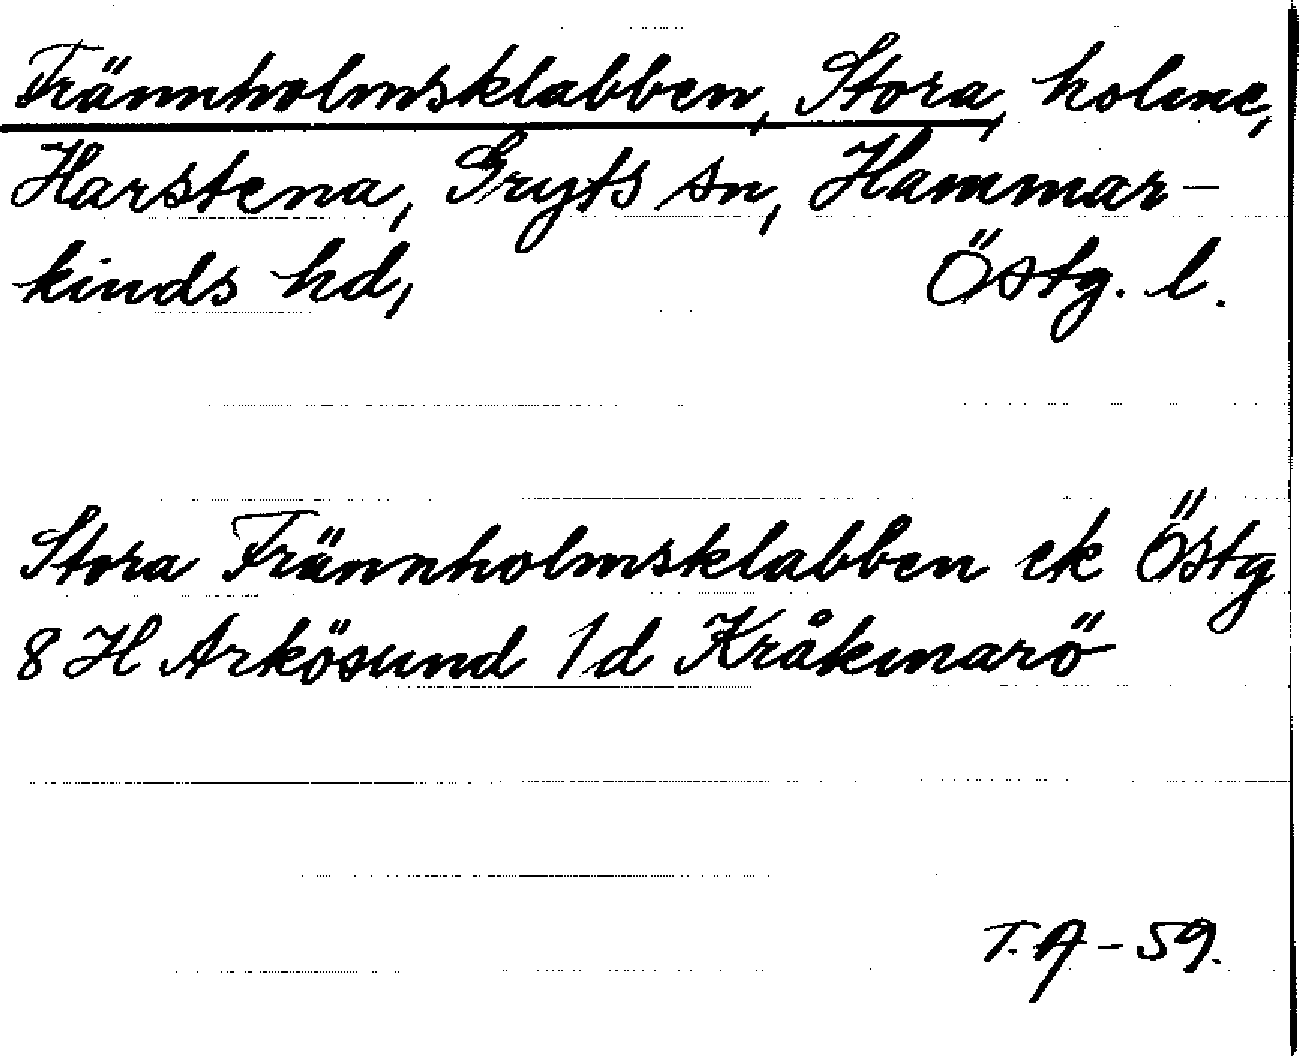 Trännholmsklabben, Stora, holme,
Harstena, Gryts sn, Hammar-
kinds hd, Östg. l.
Stora Trännholmsklabben ek Östg
8 H Arkösund 1d Kråkmarö
T.A-59.